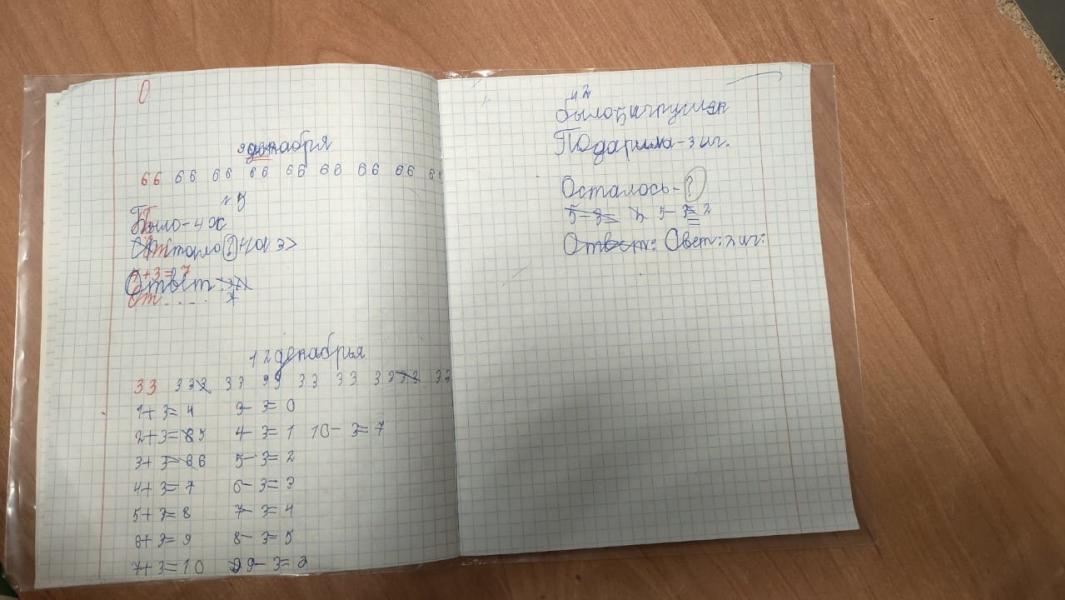 О
9 декабря
66 66 66 66 66 66 66 66 6
Было-4
Стало ? на 3>
4+3=7
Ответ: 7
От....
12 декабрья
33 332 33 33 33 33 33 32 33
1+3=4 3-3=0
2+3=85 4-3=1 10-3=7
3+3=66 5-3=2
4+3=7 6-3=3
5+3=8 7-3=4
6+3=9 8-3=5
7+3=10 99-3=
Подарила-3 иг.
Осталось-?
5-3= 5-3=2
Ответ: Ответ: 2 иг.